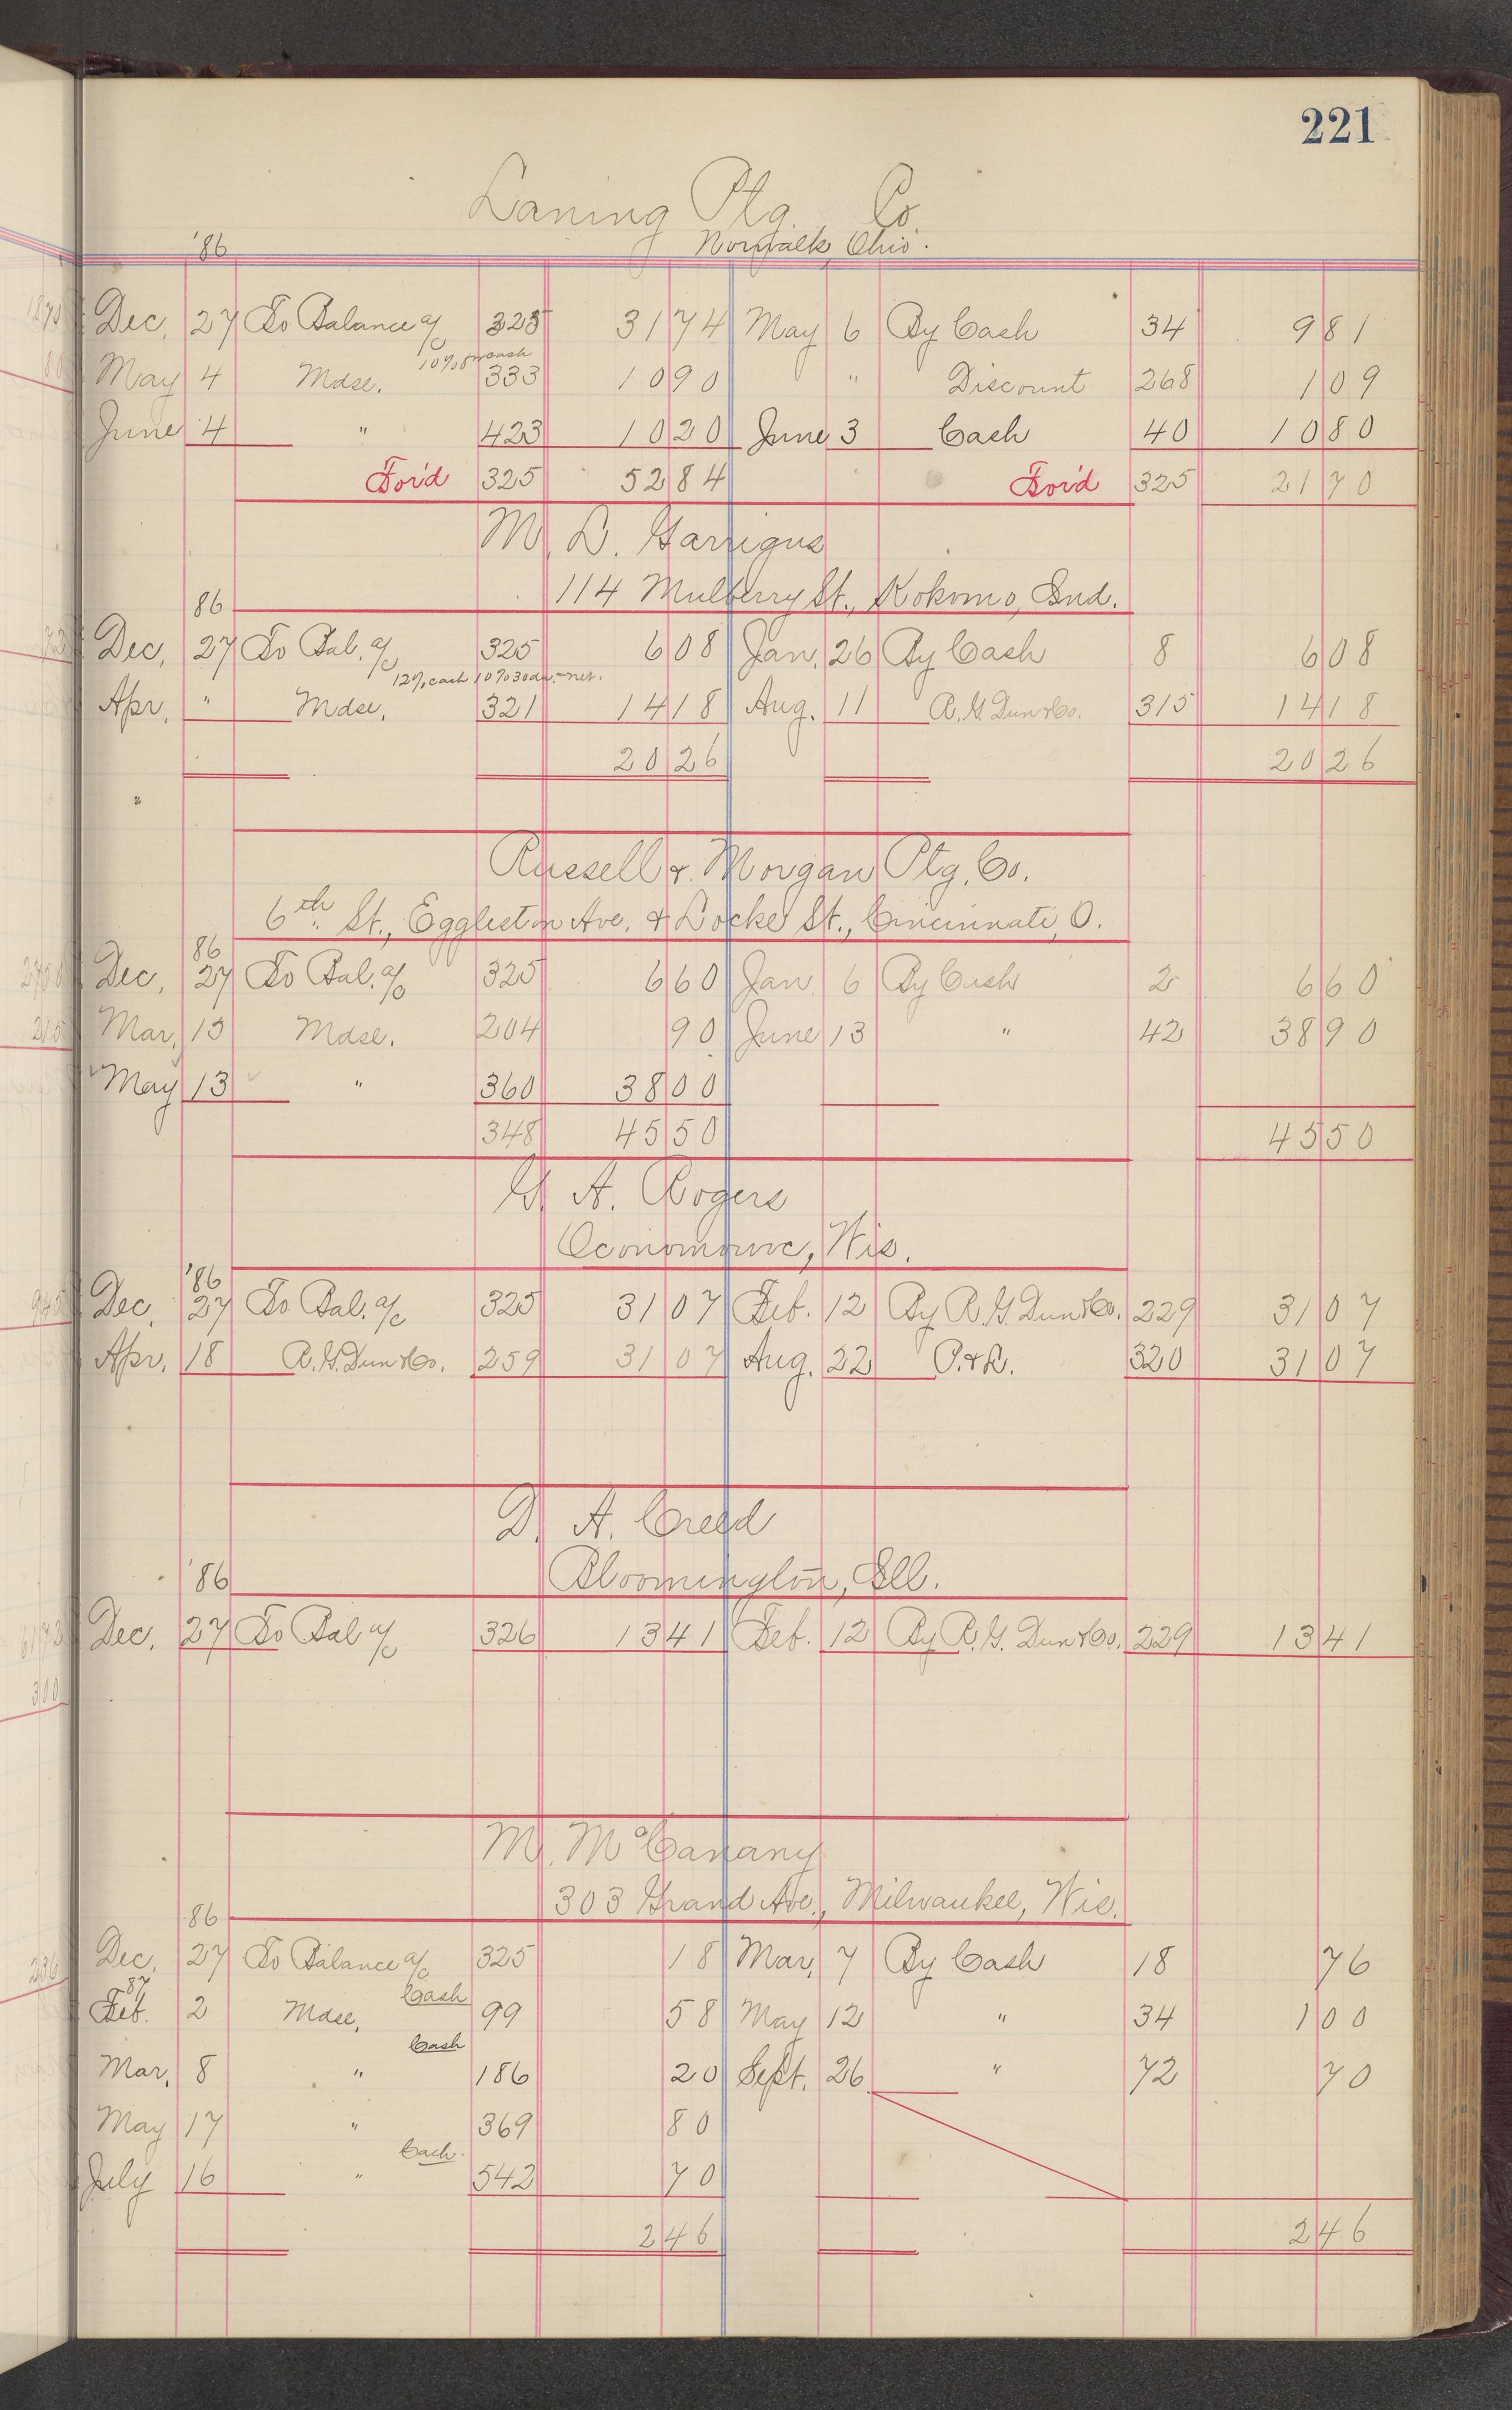 221
Laning Ptg. Co
'86 Norwalk, Ohio.
Dec. 27 To Balance a/c 325 31 74 May 6 By Cash 34 9 81
10% for cash
May 4 Mdse. 333 10 90 " Discount 268 1 09
June 4 " 423 10 20 June 3 Cash 40 10 80
For'd 325 52 84 For'd 325 21 70
M. L. Garrigus
114 Mulberry St., Kokomo, Ind.
86
Dec. 27 To Bal. a/c 325 6 08 Jan. 26 By Cash 8 6 08
12% cash 10% 30 da. - net.
Apr. " Mdse. 321 14 18 Aug. 11 R. G. Dun & Co. 315 14 18
20 26 20 26
"
Russell & Morgan Ptg. Co.
6th St., Eggleston Ave. & Locke St., Cincinnati, O.
86
Dec. 27 To Bal. a/c 325 6 60 Jan. 6 By Cash 2 6 60
Mar. 15 Mdse. 204 90 June 13 " 42 38 90
May 13 " 360 38 00
348 45 50 45 50
G. A. Rogers
Oconomowc, Wis.
'86
Dec. 27 To Bal. a/c 325 31 07 Feb. 12 By R. G. Dun & Co. 229 31 07
Apr. 18 R. G. Dun & Co. 259 31 07 Aug. 22 P. & L. 320 31 07
D. A. Creed
Bloomington, Ill.
'86
Dec. 27 To Bal a/c 326 13 41 Feb. 12 By R. G. Dun & Co. 229 13 41
M. McCanany
303 Grand Ave., Milwaukee, Wis.
86
Dec. 27 To Balance a/c 325 18 Mar. 7 By Cash 18 76
87 Cash
Feb. 2 Mdse. 99 58 May 12 " 34 1 00
Cash
Mar. 8 " 186 20 Sept. 26 " 72 70
May 17 " 369 80
Cash.
July 16 " 542 70
2 46 2 46